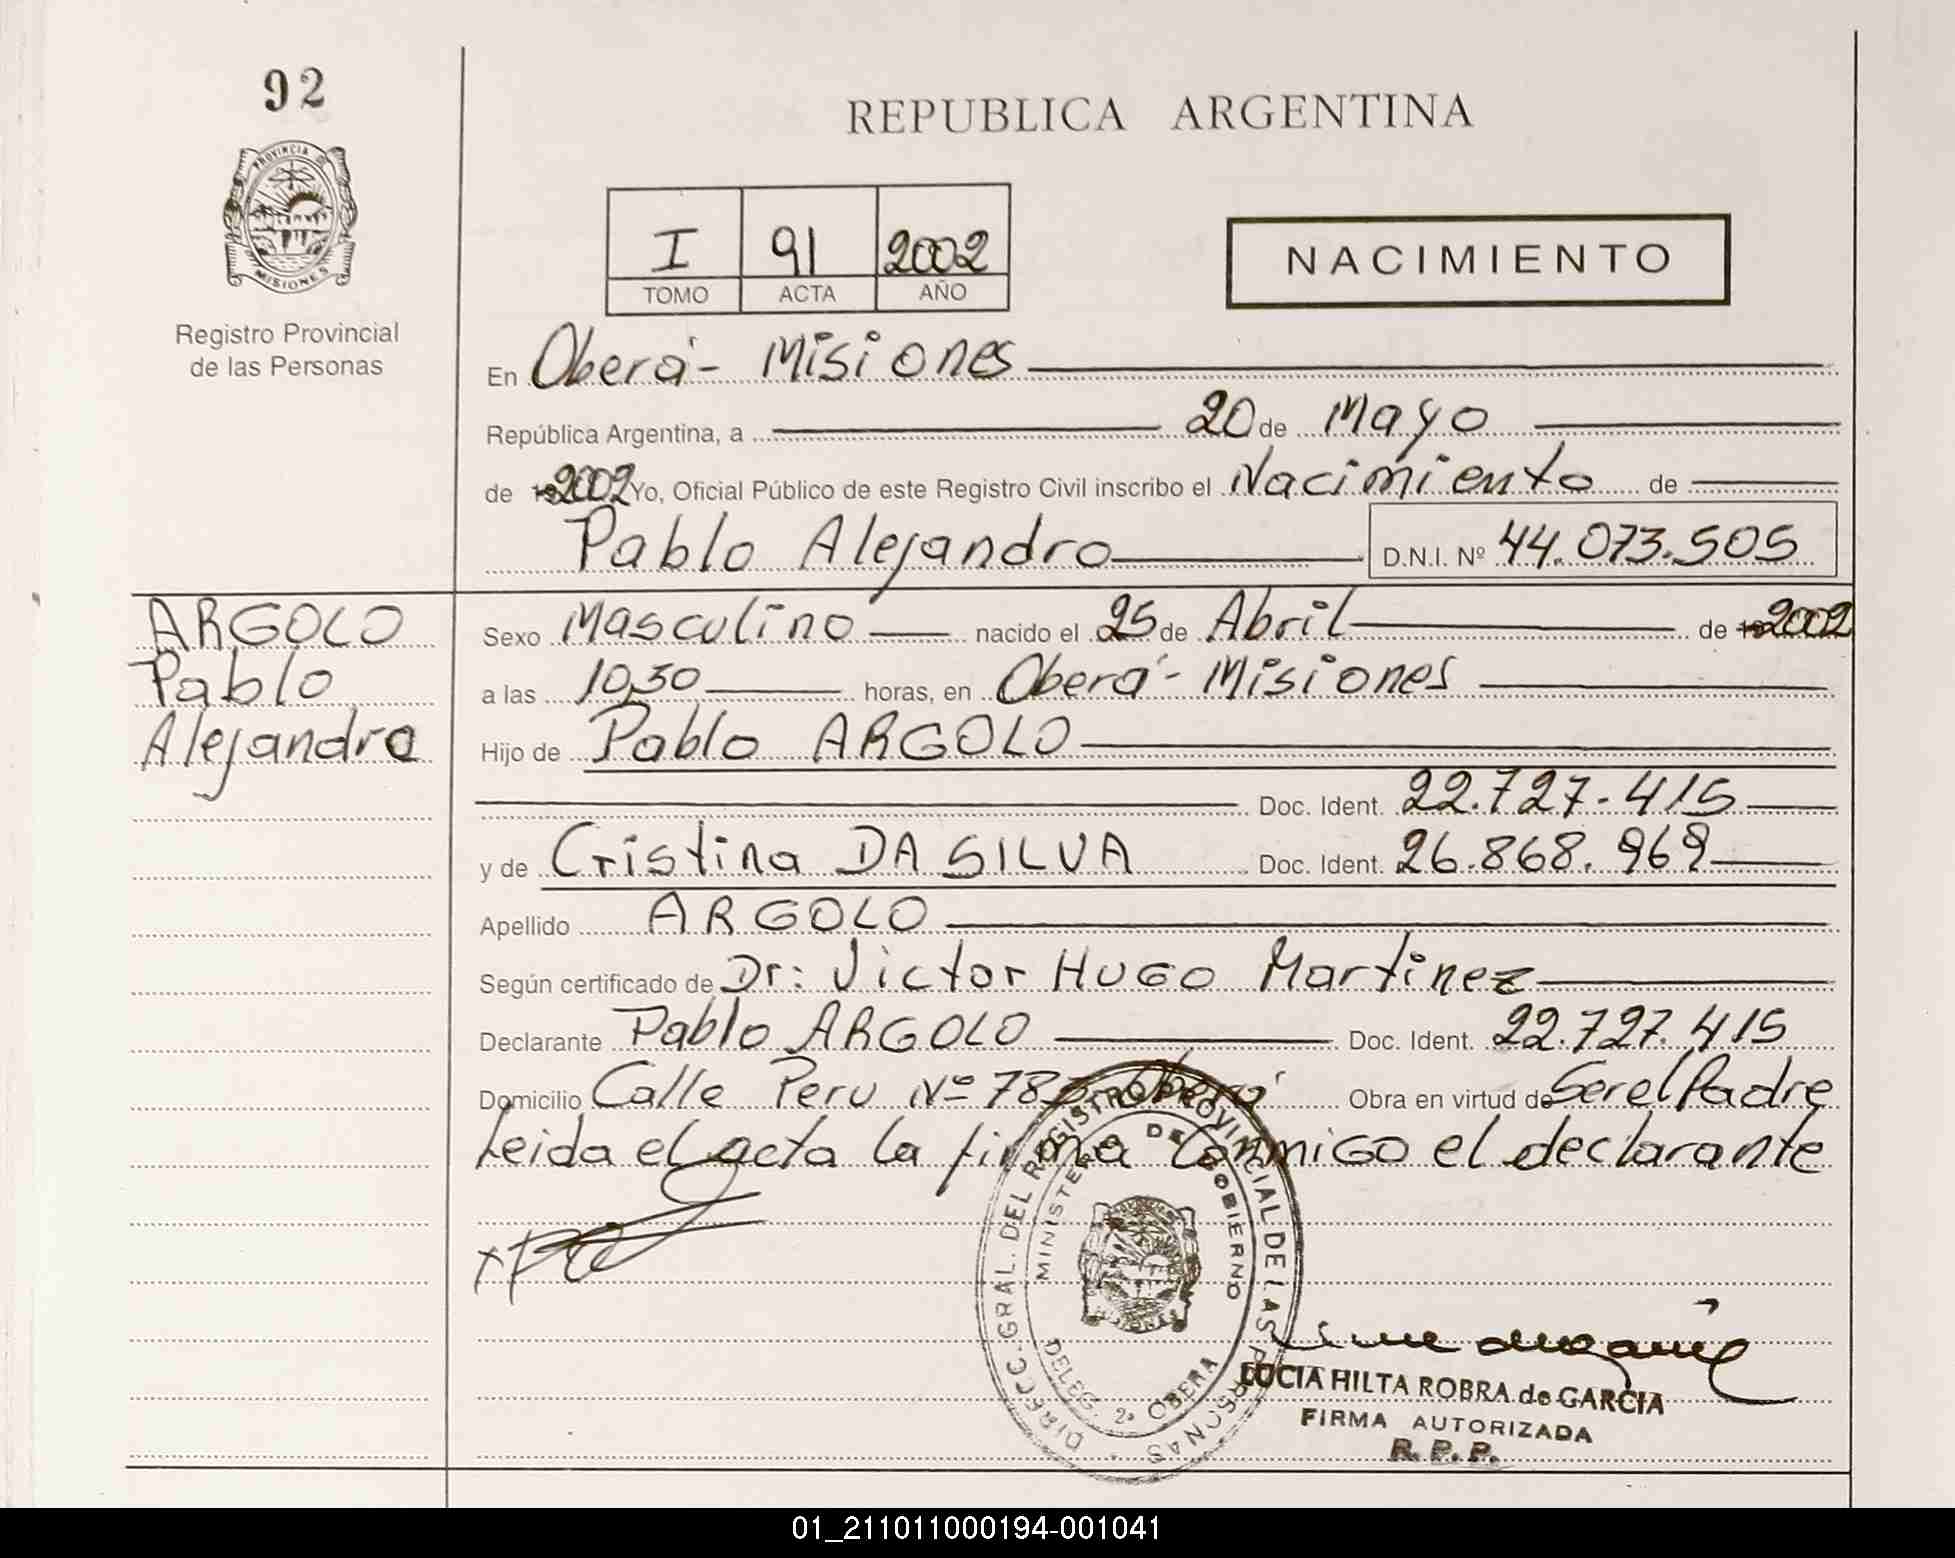 92
PROVINCIA DE
MISIONES
Registro Provincial
de las Personas
REPUBLICA ARGENTINA
I 91 2002
TOMO ACTA AÑO
NACIMIENTO
En Oberá - Misiones
República Argentina, a 20 de Mayo
de 19 2002 Yo, Oficial Público de este Registro Civil inscribo el Nacimiento de
Pablo Alejandro D.N.I. Nº 44.073.505
ARGOLO
Pablo
Alejandro
Sexo Masculino nacido el 25 de Abril de 19 2002
a las 10,30 horas, en Oberá - Misiones
Hijo de Pablo ARGOLO
Doc. Ident. 22.727.415
y de Cristina DA SILVA Doc. Ident. 26.868.969
Apellido ARGOLO
Según certificado de Dr: Victor HUGO Martinez
Declarante Pablo ARGOLO Doc. Ident. 22.727.415
Domicilio Calle Peru Nº 78 Oberá Obra en virtud de Ser el Padre
Leida el acta la firma conmigo el declarante
DIRECC. GRAL. DEL REGISTRO PROVINCIAL DE LAS PERSONAS
MINISTERIO DE GOBIERNO
DELEG. 2ª OBERA
LUCIA HILTA ROBRA de GARCIA
FIRMA AUTORIZADA
R. P. P.
01_211011000194-001041